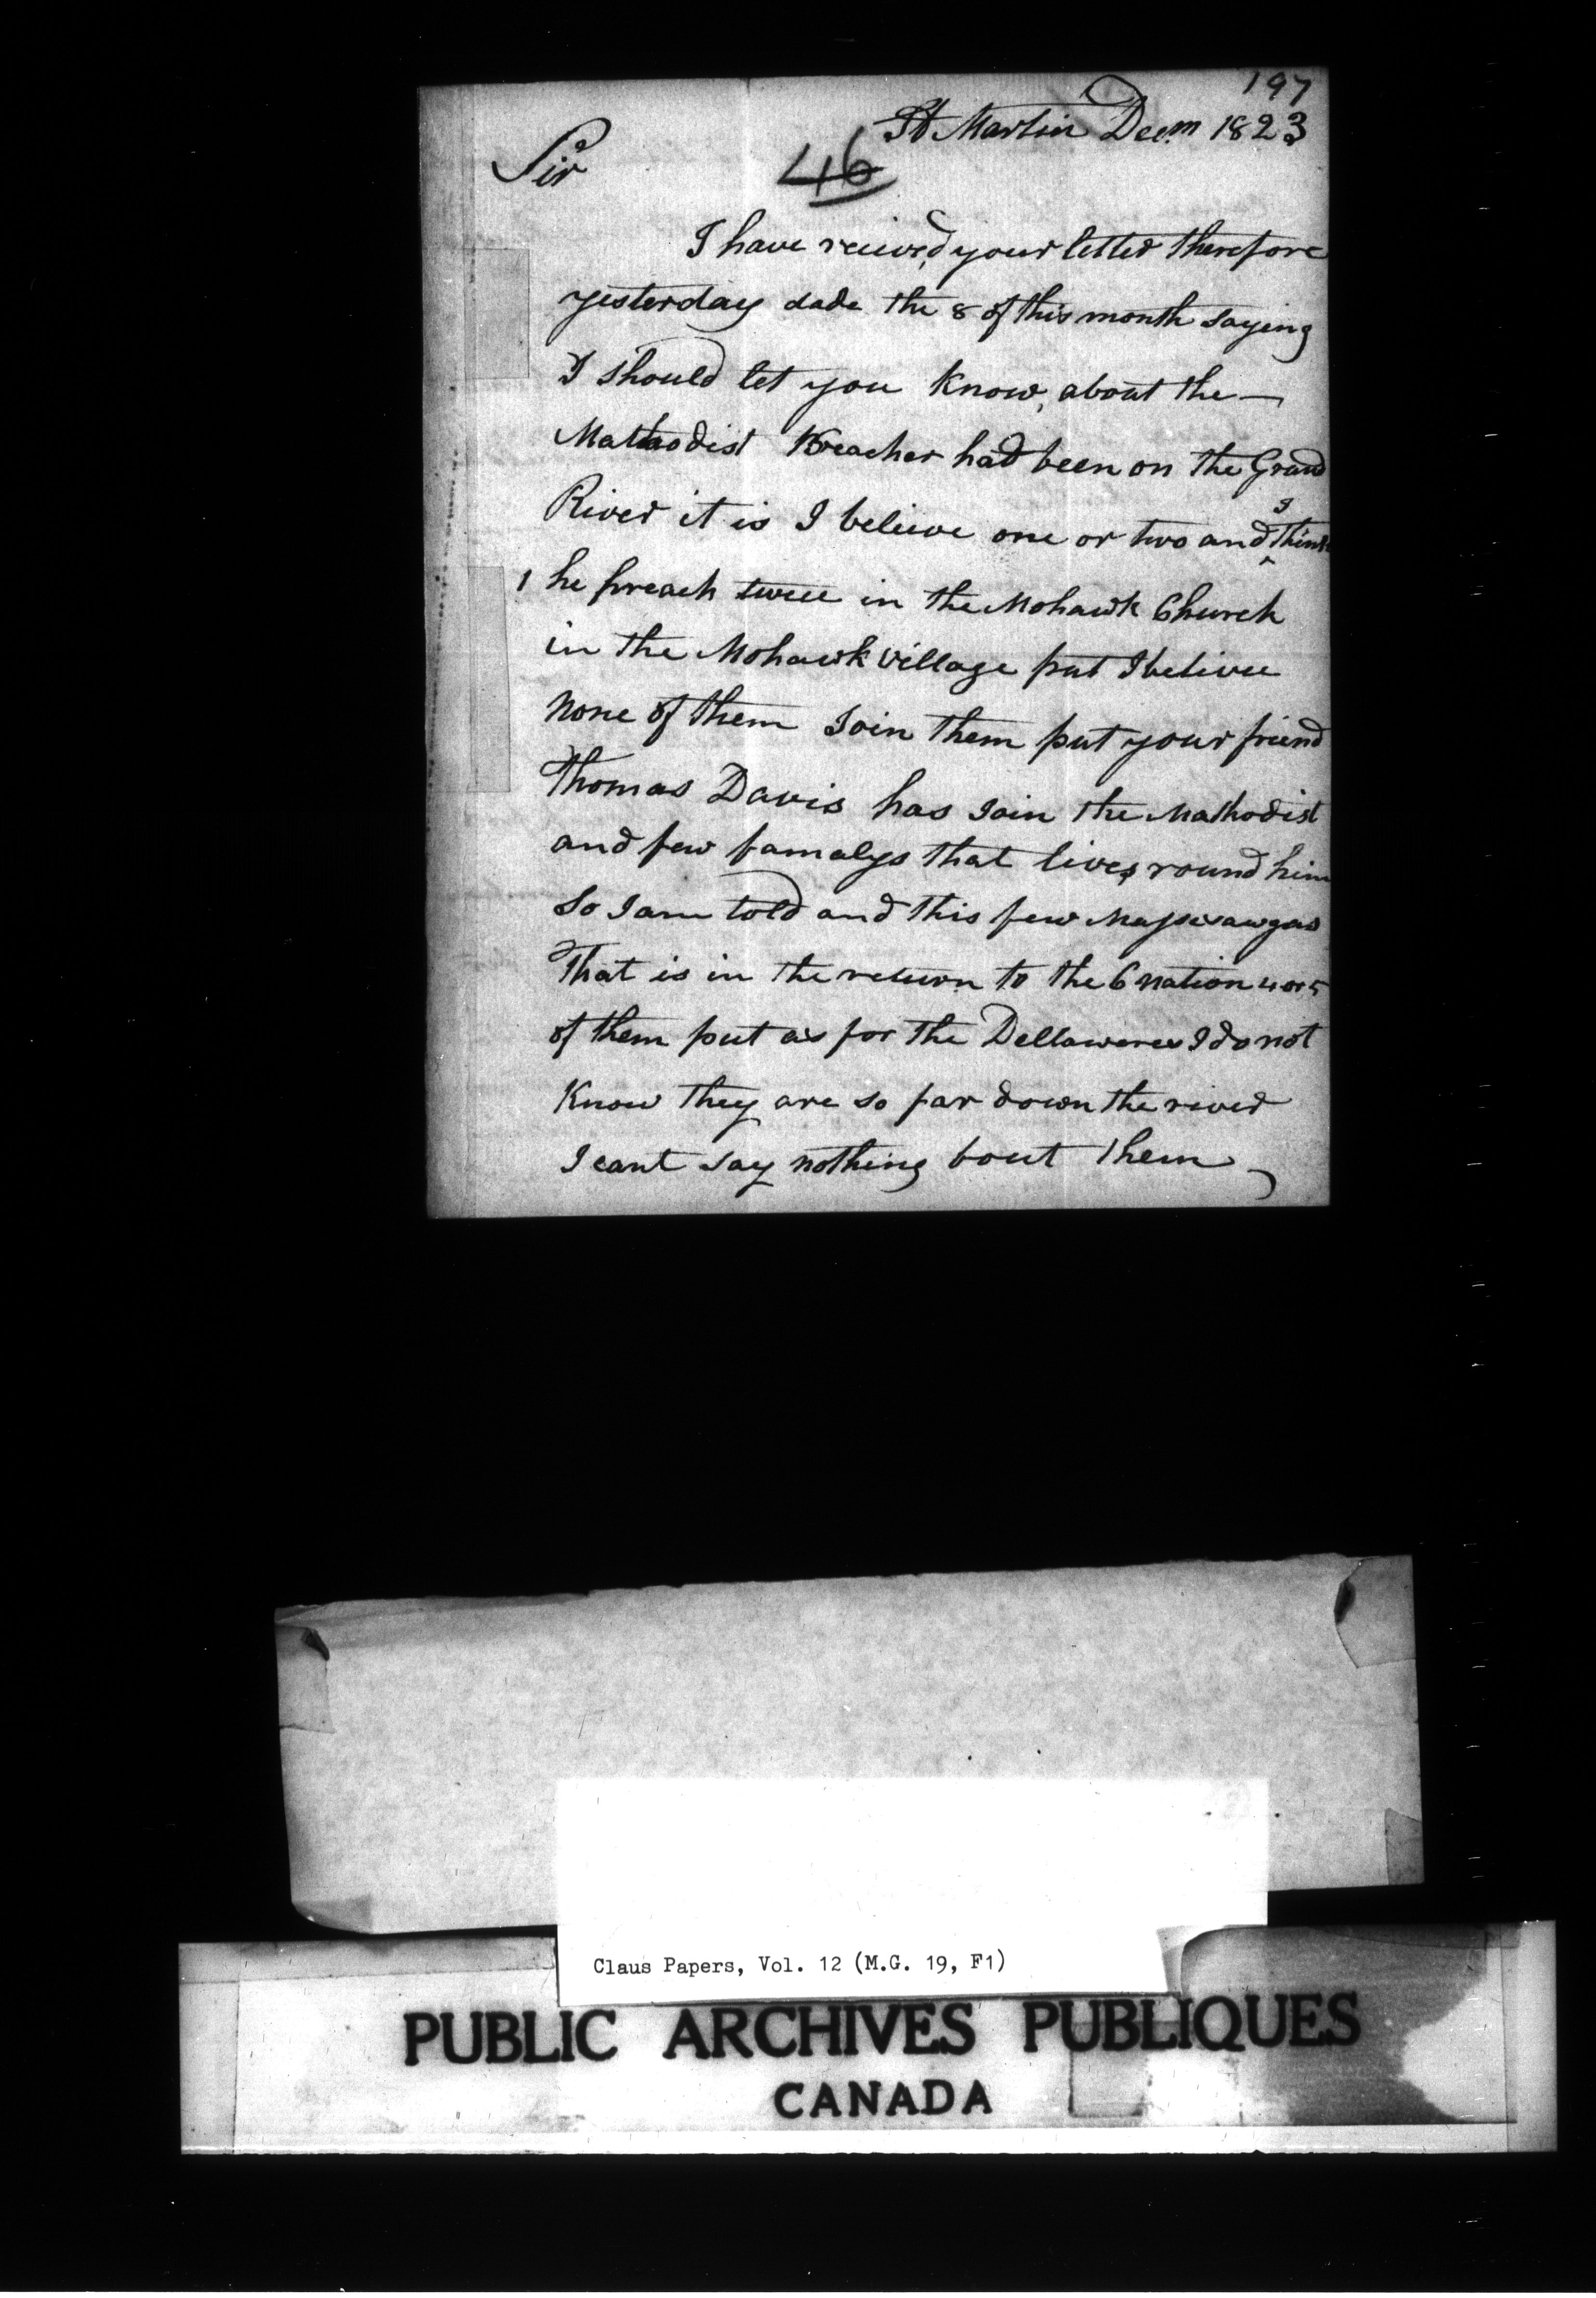 197
St Martin Decm 1823
Sir
46
I have reiived your letter therefore
yesterday dade the 8 of this month saying
I should let you know, about the —
Mathodist Preacher had been on the Grand
River it is I believe one or two and I think
1 he preach twice in the Mohawk Church
in the Mohawk village put I belive
none of them Join them put your friend
Thomas Davis has Join the Mathodist
and few famalys that lives round him
So I am told and this few Massesawgas
That is in the return to the 6 nation 4 or 5
of them put as for the Dellaweres I do not
Know they are so far down the river
I cant say nothing bout them
Claus Papers, Vol. 12 (M.G. 19, F1)
PUBLIC ARCHIVES PUBLIQUES
CANADA